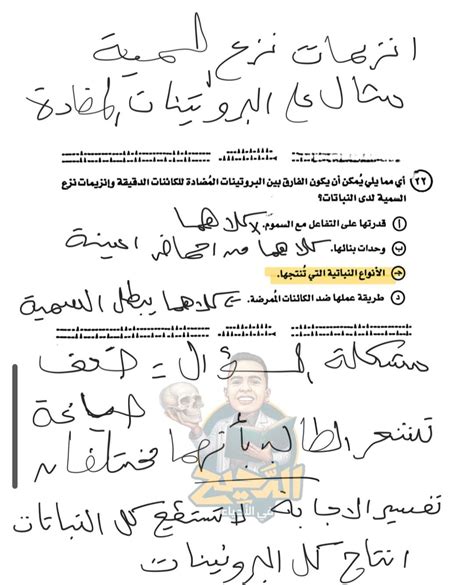 انزيمات نزع السمية
مثال على البروتينات المضادة
٢٢) أي مما يلي يُمكن أن يكون الفارق بين البروتينات المُضادة للكائنات الدقيقة وإنزيمات نزع
السمية لدى النباتات؟
أ قدرتها على التفاعل مع السموم. كلاهما
ب وحدات بنائها. كلاهما من احماض امينية
ج الأنواع النباتية التي تُنتجها.
د طريقة عملها ضد الكائنات المُمرضة. كلاهما يبطل السمية
مشكلة السؤال = ضعف
صياغة
تشعر الطالب بأنهما مختلفان
الدحيح
في الأحياء
تفسير الاجابة لا تستطيع كل النباتات
انتاج كل البروتينات